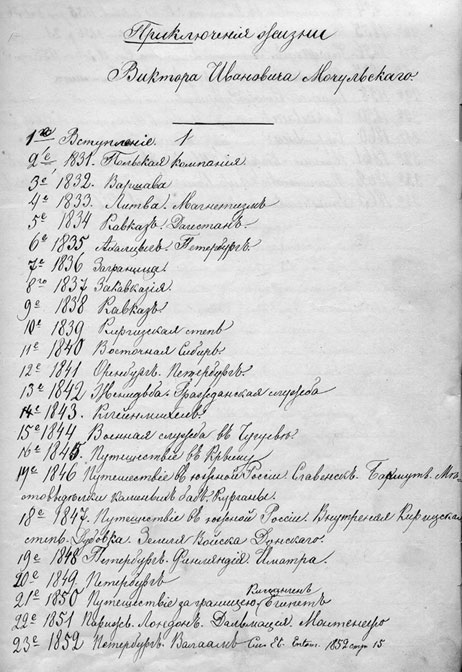 Приключенія жизни
Виктора Ивановича Мочульскаго.
1е Вступленіе. 1
2е 1831. Польская компанія
3е 1832. Варшава
4е 1833. Литва. Магнетизмъ
5е 1834 Кавказъ. Дагестанъ.
6е 1835 Петербургъ.
7е 1836 Заграница.
8го 1837 Закавказія.
9е 1838 Кавказъ.
10е 1839 Киргизская степь
11е 1840 Восточная Сибирь
12е 1841 Оренбургъ. Петербургъ.
13е 1842 Женидьба. Гражданская служба
14е 1843. Клейнмихель.
15е 1844 Военная служба въ Чугуевѣ
16е 1845 Путешествіе въ
17е 1846 Путешествіе въ южной Россіи. Славенскъ. Бахмутъ.
каменныхъ бабъ. Курганы.
18е 1847. Путешествіе въ южной Россіи. Внутреная Киргизская
степь. Дубовка. Земля Войска Донскаго.
19е 1848 Петербургъ. Финляндія. Иматра.
20е 1849 Петербургъ
21е 1850 Путешествіе заграницею Египетъ
22е 1851 Парижъ. Лондонъ. Далмація. Монтенегро
23е 1852 Петербургъ. Валаамъ. Et. Entom. 1852 стр 15